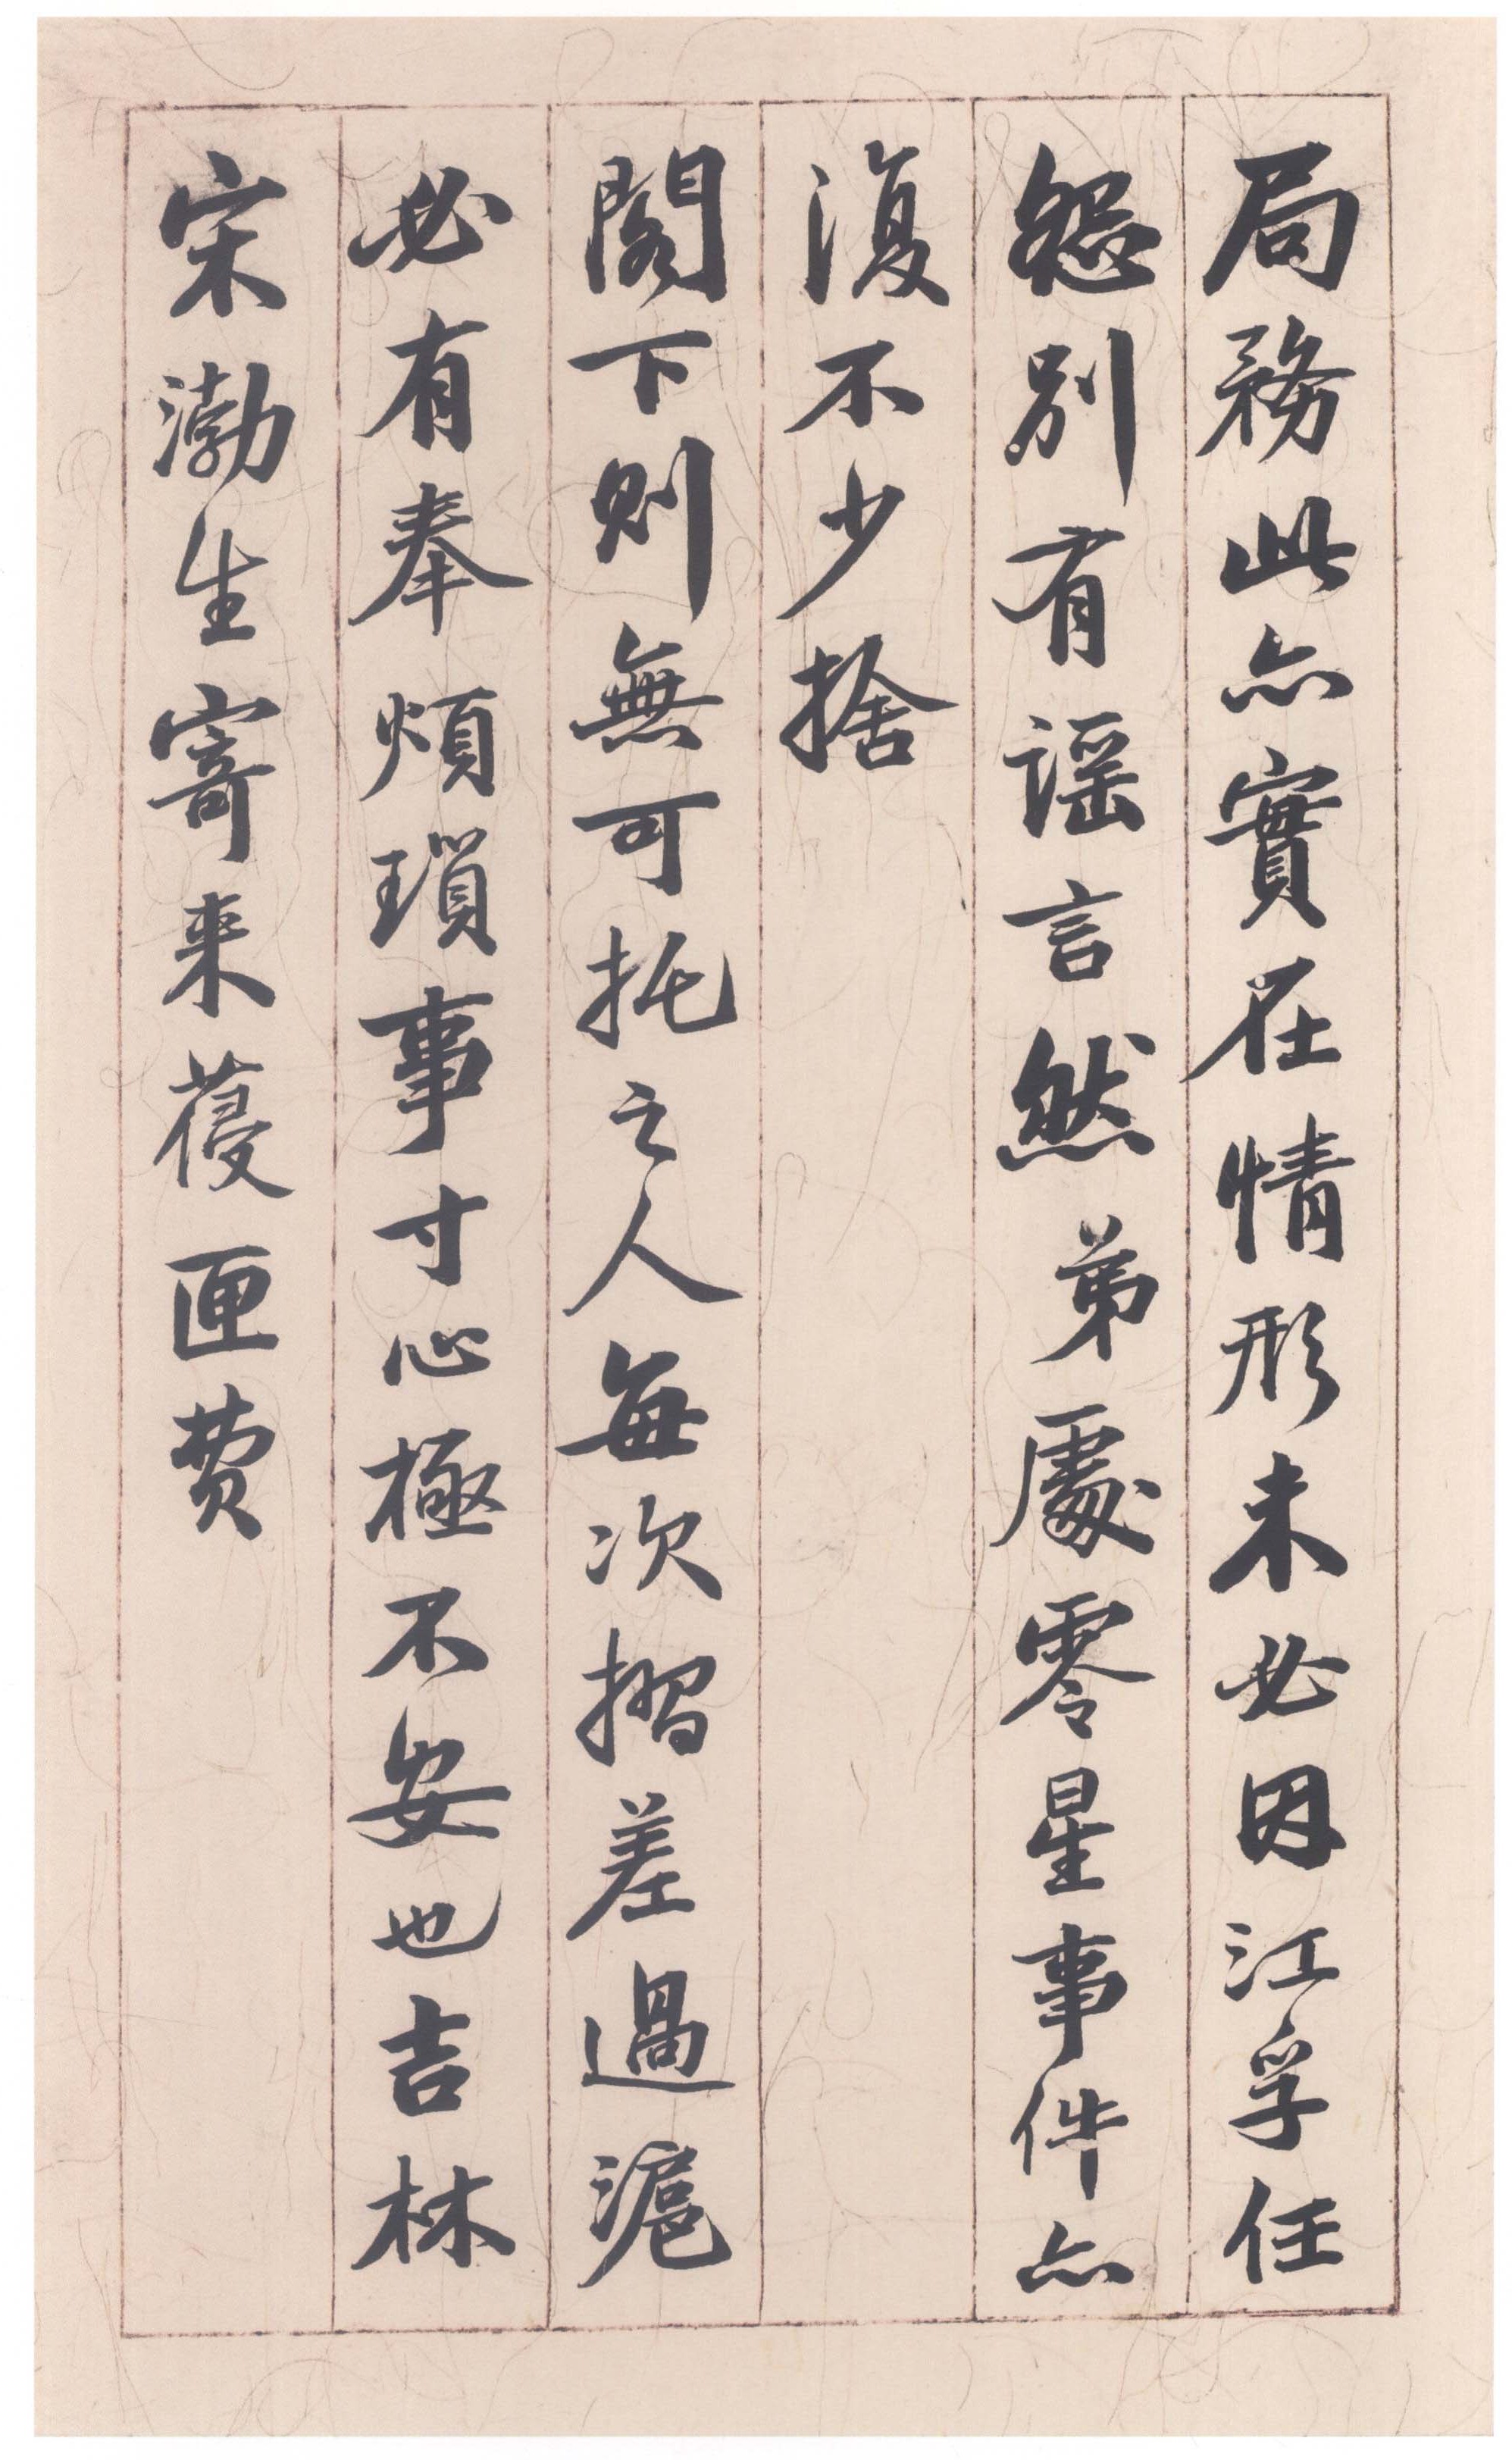 局務此亦實在情形未必因江孚任
怨別有謡言然弟處零星事件亦
復不少捨
閣下則無可托之人每次摺差過滬
必有奉煩瑣事寸心極不安也吉林
宋渤生寄来葠匣費